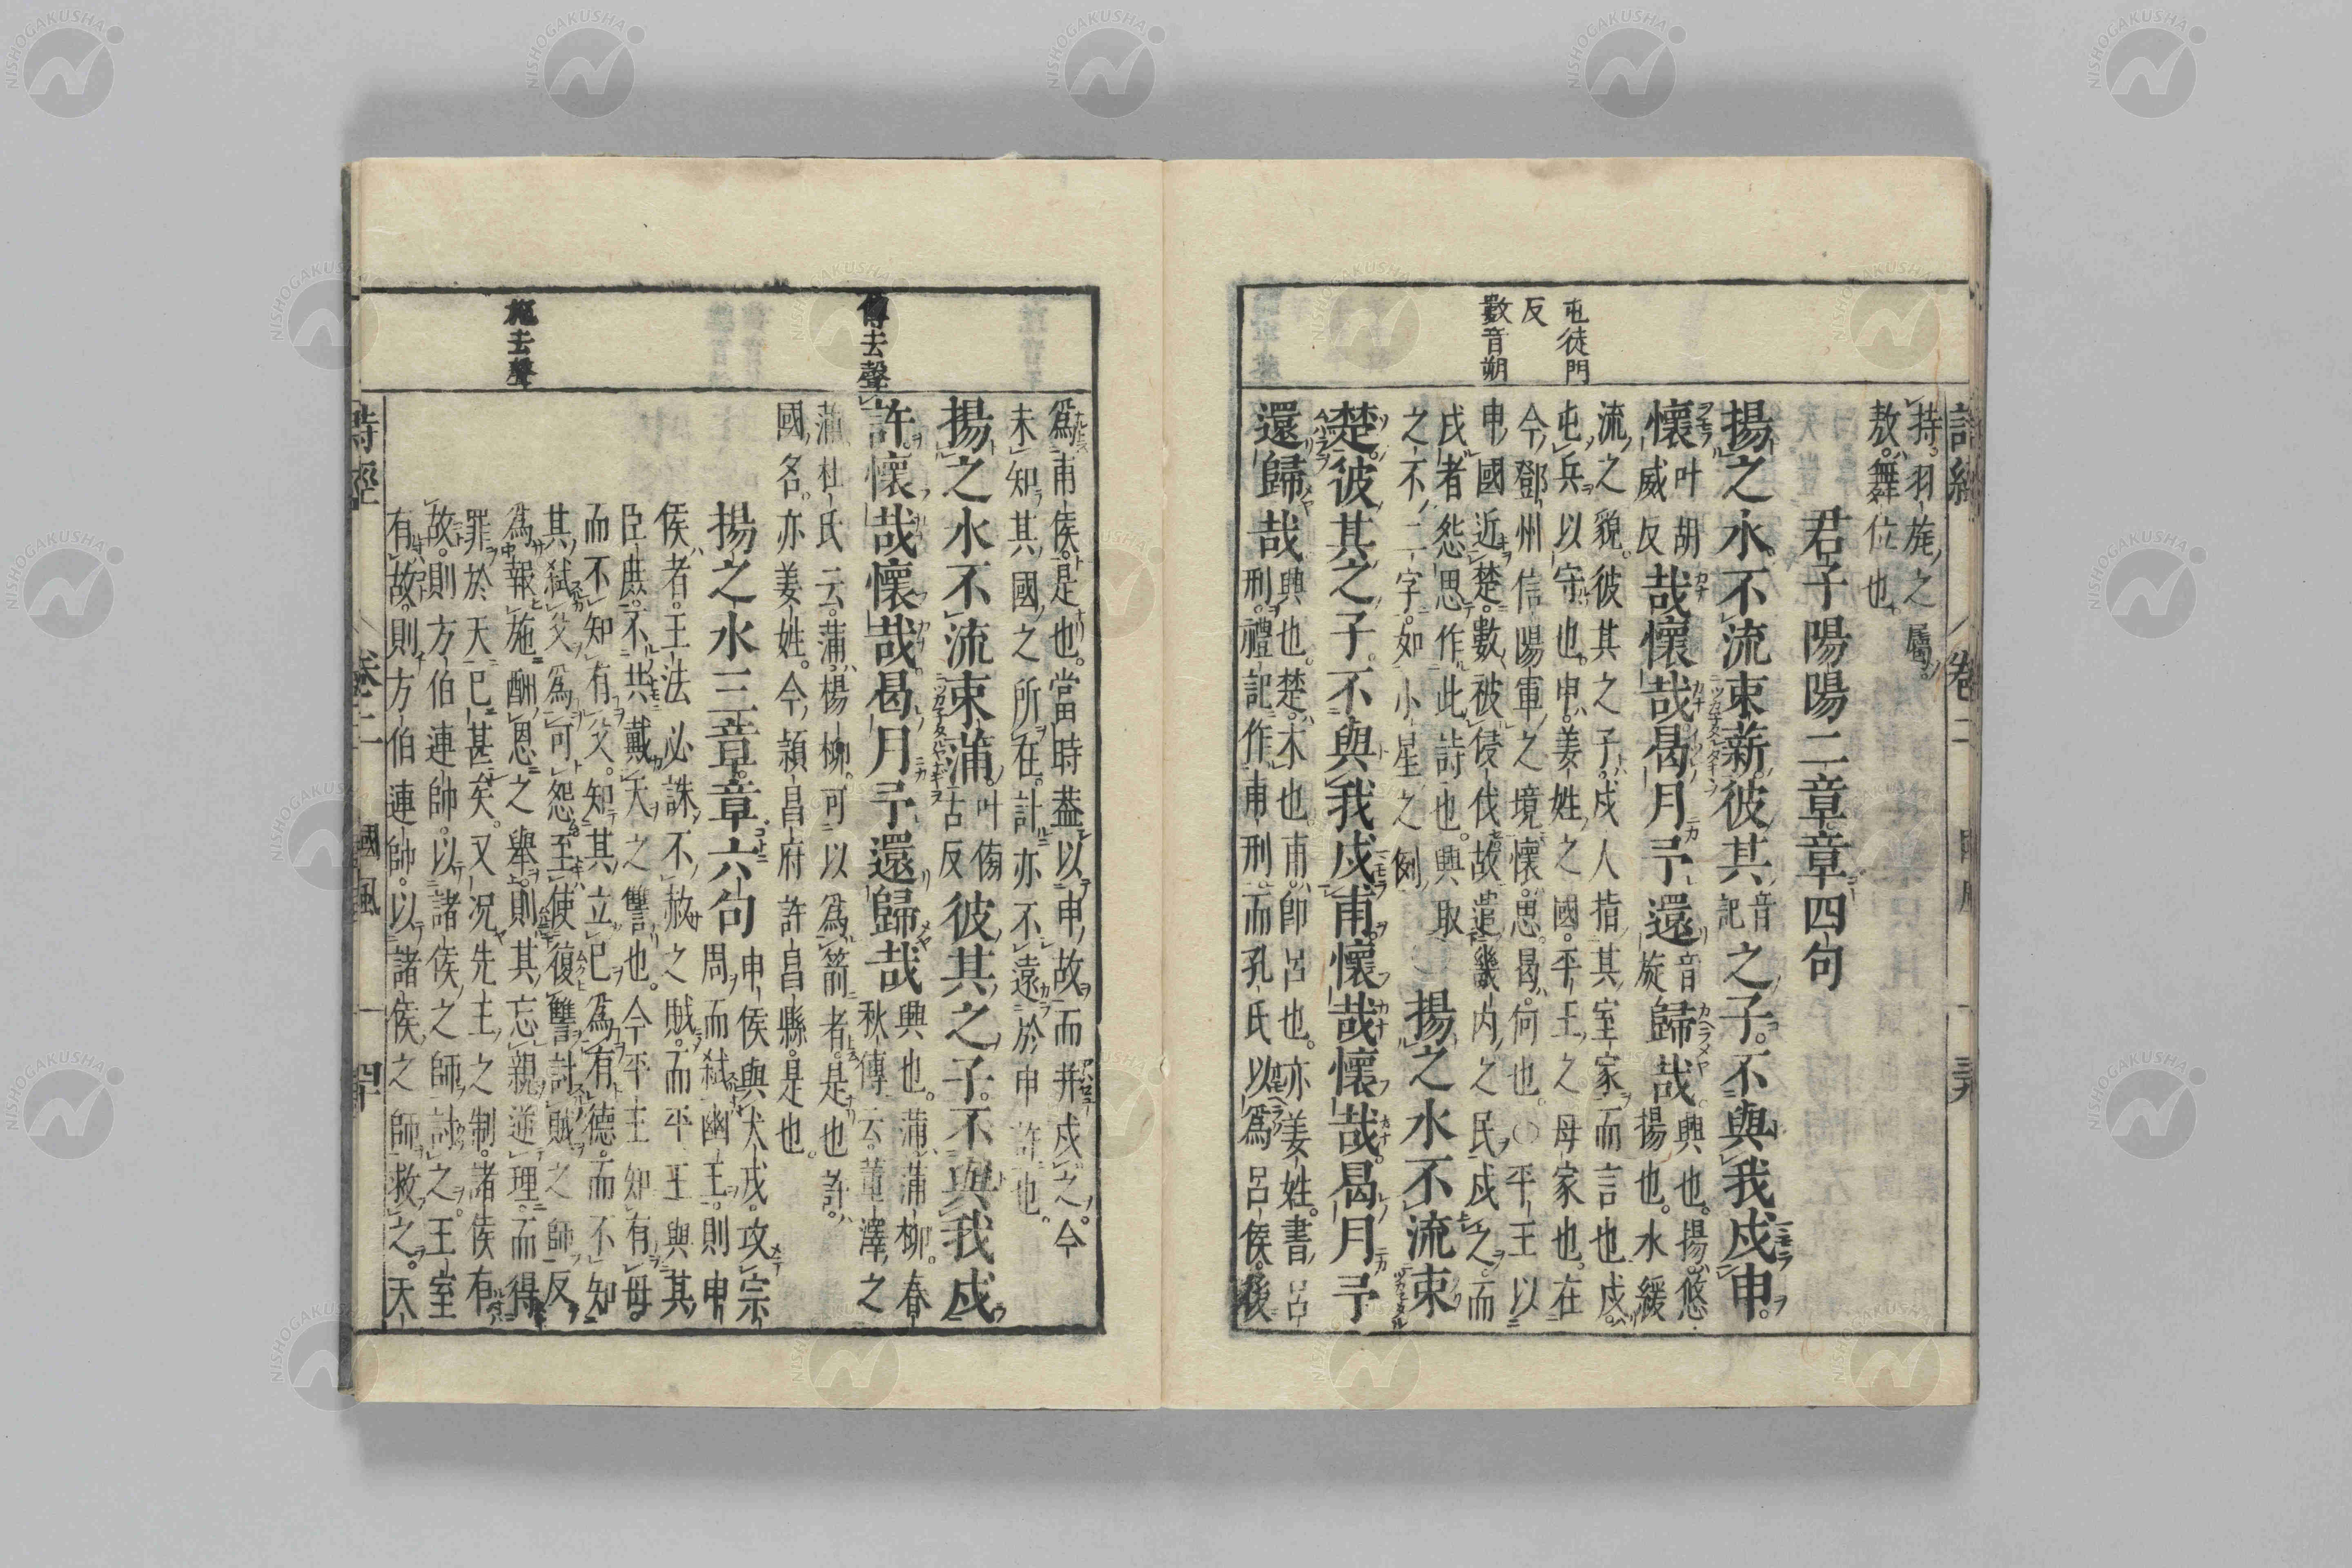 詩經 卷二 國風 三十九
屯徒門
反
數音朔
持羽旄之屬
敖舞位也
君子陽陽二章章四句
揚之水不流束薪彼其音記之子不與我戍申
懷叶胡威反哉懷哉曷月予還音旋歸哉興也揚悠揚也水緩
流之貌彼其之子戍人指其室家而言也戍
屯兵以守也申姜姓之國平王之母家也在
今鄧州信陽軍之境懷思曷何也○平王以
申國近楚數被侵伐故遣畿内之民戍之而
戍者怨思作此詩也興取
之不二字如小星之例 揚之水不流束
楚彼其之子不與我戍甫懷哉懷哉曷月予
還歸哉興也楚木也甫卽呂也亦姜姓書呂刑禮記作甫刑而孔氏以爲呂侯後
傅去聲
施去聲
爲甫侯是也當時蓋以申故而并戍之今
未知其國之所在計亦不遠於申許也
揚之水不流束蒲叶滂古反彼其之子不與我戍
許懷哉懷哉曷月予還歸哉興也蒲蒲柳春秋傳云董澤之
蒲杜氏云蒲楊柳可以爲箭者是也許
國名亦姜姓今潁昌府許昌縣是也
揚之水三章章六句申侯與犬戎攻宗周而弑幽王則申
侯者王法必誅不赦之賊而平王與其
臣庶不共戴天之讐也今平王知有母
而不知有父知其立己爲有德而不知
其弑父爲可怨至使復讐討賊之師反
爲報施酬恩之舉則其忘親逆理而得
罪於天已甚矣又况先王之制諸侯有
故則方伯連帥以諸侯之師討之王室
有故則方伯連帥以諸侯之師救之天
詩經 卷二 國風 四十